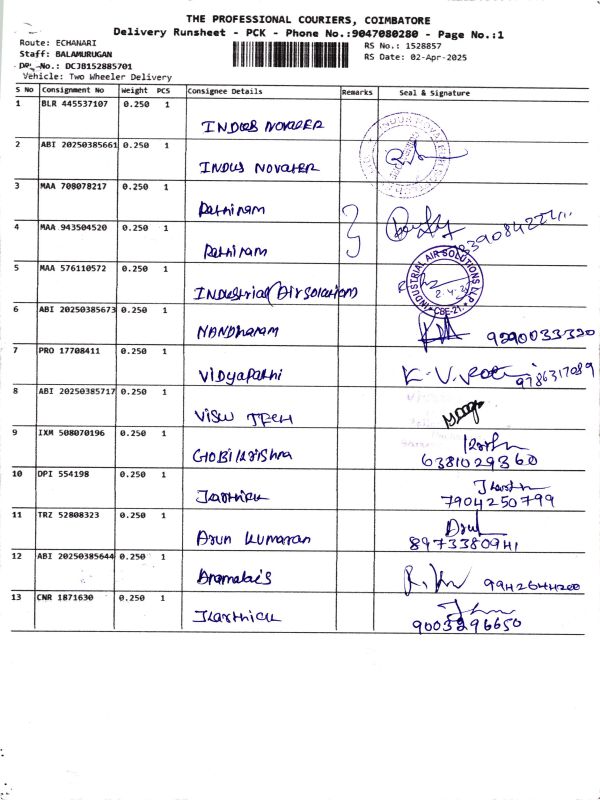 THE PROFESSIONAL COURIERS, COIMBATORE
Delivery Runsheet - PCK - Phone No.:9047080280 - Page No.:1
Route: ECHANARI
RS No.: 1528857
Staff: BALAMURUGAN
RS Date: 02-Apr-2025
No.: DCJB152885701
Vehicle: Two Wheeler Delivery
S No Consignment No Weight PCS Consignee Details Remarks Seal & Signature
1 BLR 445537107 0.250 1
INDUS NOVATER
2 ABI 20250385661 0.250 1
INDUS NOVATER
3 MAA 708078217 0.250 1
Rathinam
4 MAA 943504520 0.250 1
Rathinam
5 MAA 576110572 0.250 1
INDUSTRIAL AIR SOLUTIONS LLP
CBE-21.
Industrial Air Solution
6 ABI 20250385673 0.250 1
NANDHARAM 9290033320
7 PRO 17708411 0.250 1
Vidyapathi K.V. 9786317089
8 ABI 20250385717 0.250 1
VISW TECH
9 IXM 508070196 0.250 1
Gobi Krishna 6381029360
10 DPI 554198 0.250 1
Karthick 7904250799
11 TRZ 52808323 0.250 1
Arun Kumaran 8973380941
12 ABI 20250385644 0.250 1
Annamalai's 9942644200
13 CNR 1871630 0.250 1
Karthick 9003296650